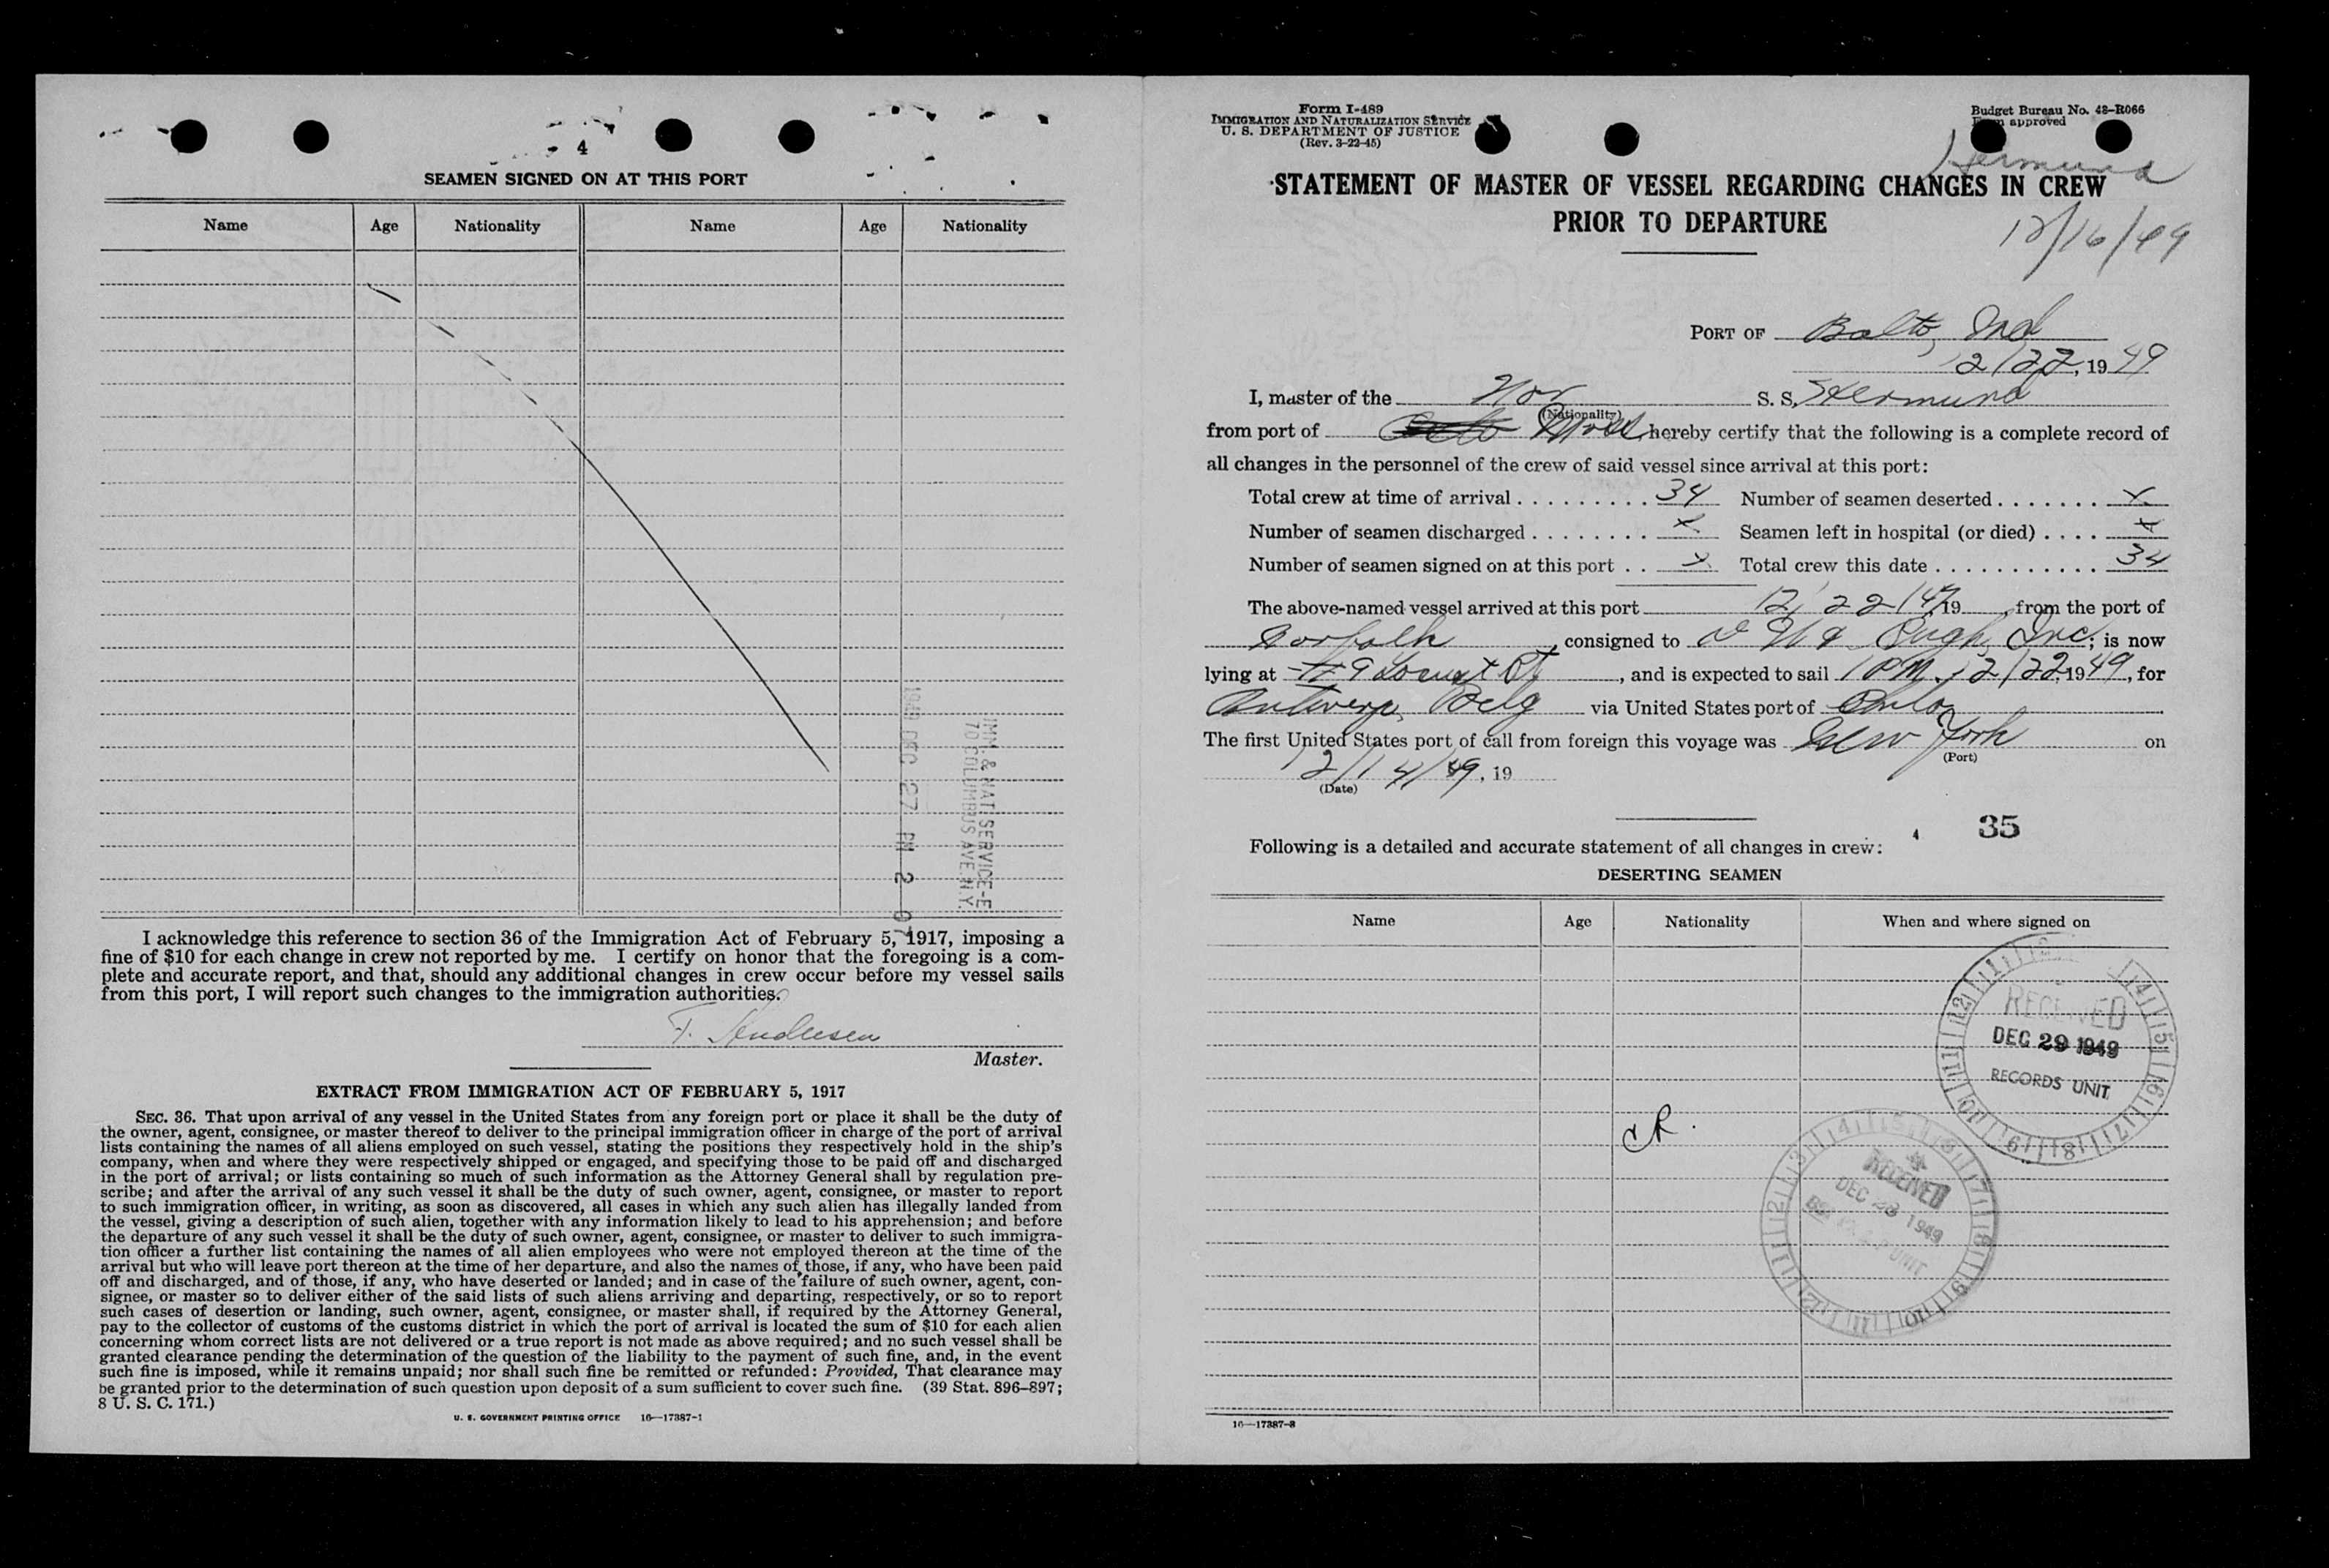 4
SEAMEN SIGNED ON AT THIS PORT
Name Age Nationality Name Age Nationality
1949 DEC 27 PM 2 07
IMM. & NAT. SERVICE-E
70 COLUMBUS AVE. N.Y.
I acknowledge this reference to section 36 of the Immigration Act of February 5, 1917, imposing a
fine of $10 for each change in crew not reported by me. I certify on honor that the foregoing is a com-
plete and accurate report, and that, should any additional changes in crew occur before my vessel sails
from this port, I will report such changes to the immigration authorities.
F. Andersen
Master.
EXTRACT FROM IMMIGRATION ACT OF FEBRUARY 5, 1917
SEC. 36. That upon arrival of any vessel in the United States from any foreign port or place it shall be the duty of
the owner, agent, consignee, or master thereof to deliver to the principal immigration officer in charge of the port of arrival
lists containing the names of all aliens employed on such vessel, stating the positions they respectively hold in the ship's
company, when and where they were respectively shipped or engaged, and specifying those to be paid off and discharged
in the port of arrival; or lists containing so much of such information as the Attorney General shall by regulation pre-
scribe; and after the arrival of any such vessel it shall be the duty of such owner, agent, consignee, or master to report
to such immigration officer, in writing, as soon as discovered, all cases in which any such alien has illegally landed from
the vessel, giving a description of such alien, together with any information likely to lead to his apprehension; and before
the departure of any such vessel it shall be the duty of such owner, agent, consignee, or master to deliver to such immigra-
tion officer a further list containing the names of all alien employees who were not employed thereon at the time of the
arrival but who will leave port thereon at the time of her departure, and also the names of those, if any, who have been paid
off and discharged, and of those, if any, who have deserted or landed; and in case of the failure of such owner, agent, con-
signee, or master so to deliver either of the said lists of such aliens arriving and departing, respectively, or so to report
such cases of desertion or landing, such owner, agent, consignee, or master shall, if required by the Attorney General,
pay to the collector of customs of the customs district in which the port of arrival is located the sum of $10 for each alien
concerning whom correct lists are not delivered or a true report is not made as above required; and no such vessel shall be
granted clearance pending the determination of the question of the liability to the payment of such fine, and, in the event
such fine is imposed, while it remains unpaid; nor shall such fine be remitted or refunded: Provided, That clearance may
be granted prior to the determination of such question upon deposit of a sum sufficient to cover such fine. (39 Stat. 896-897;
8 U. S. C. 171.)
U. S. GOVERNMENT PRINTING OFFICE 16—17387-1
Form I-489
IMMIGRATION AND NATURALIZATION SERVICE
U. S. DEPARTMENT OF JUSTICE
(Rev. 3-22-45)
Budget Bureau No. 43-R066
Form approved
Hermund
STATEMENT OF MASTER OF VESSEL REGARDING CHANGES IN CREW
PRIOR TO DEPARTURE
12/16/49
PORT OF Balto, Md
12/22, 19 49
I, master of the Nor S. S. Hermund
(Nationality)
from port of hereby certify that the following is a complete record of
all changes in the personnel of the crew of said vessel since arrival at this port:
Total crew at time of arrival . . . . . . . . . 34 Number of seamen deserted . . . . . . . x
Number of seamen discharged . . . . . . . . x Seamen left in hospital (or died) . . . . x
Number of seamen signed on at this port . . x Total crew this date . . . . . . . . . . . 34
The above-named vessel arrived at this port 12/22/49 19 , from the port of
Norfolk, consigned to Pugh, Inc; is now
lying at #9 Locust Pt, and is expected to sail 12/22, 19 49, for
Antwerp, Belg via United States port of
The first United States port of call from foreign this voyage was New York on
(Port)
12/14/49, 19
(Date)
4 35
Following is a detailed and accurate statement of all changes in crew:
DESERTING SEAMEN
Name Age Nationality When and where signed on
RECEIVED
DEC 29 1949
RECORDS UNIT
RECEIVED
DEC 28 1949
UNIT
16—17387-3